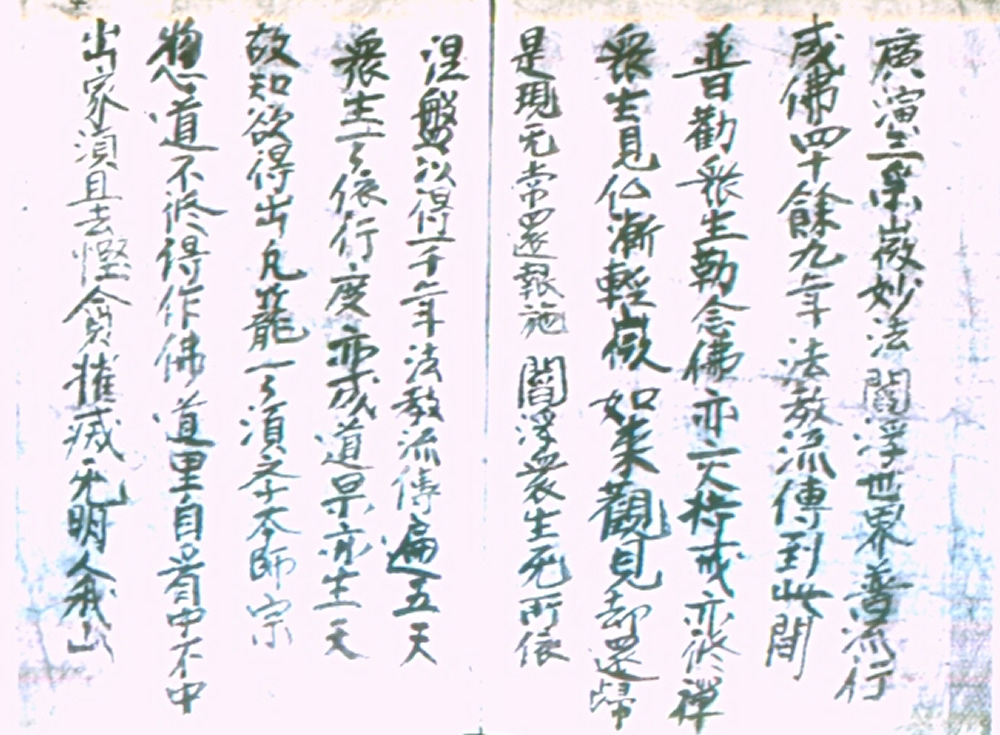 廣演三乘微妙法 閻浮世界普流行
成佛四十餘九年 法教流傳到此間
普勸衆生勤念佛 亦持戒亦修禪
衆生見仏漸輕微 如来觀見却還歸
是現无常還報施 閻浮衆生死所依
涅盤以得一千年 法教流傳遍五天
衆生一々依行度 亦成道果亦生天
故知欲得出凡籠 一々須本師宗
惣道不修得作佛 道里自看中不中
出家須且去慳貪 摧滅无明人我山